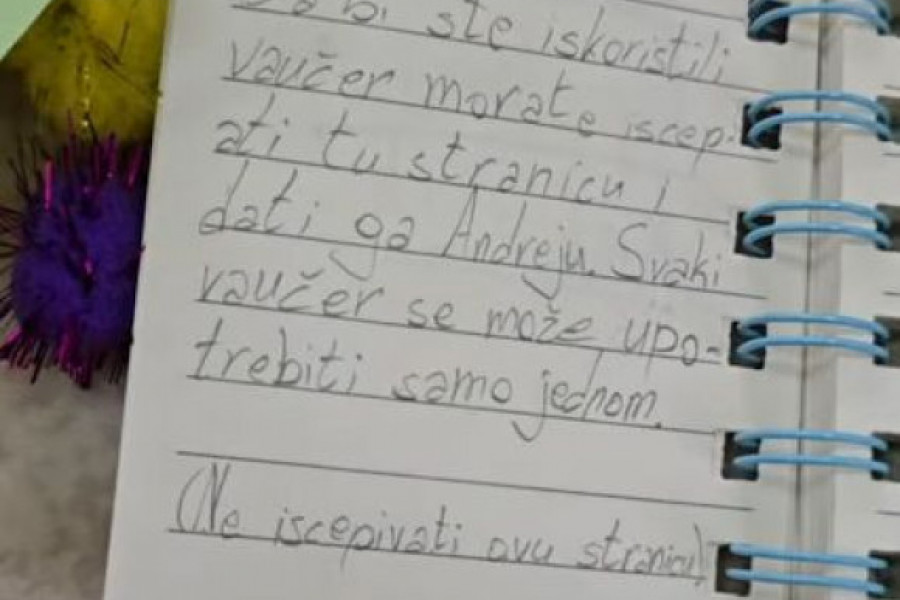 Da bi ste iskoristili
vaučer morate iscep-
ati tu stranicu i
dati ga Andreju. Svaki
vaučer se može upo-
trebiti samo jednom.
(Ne iscepivati ovu stranicu)